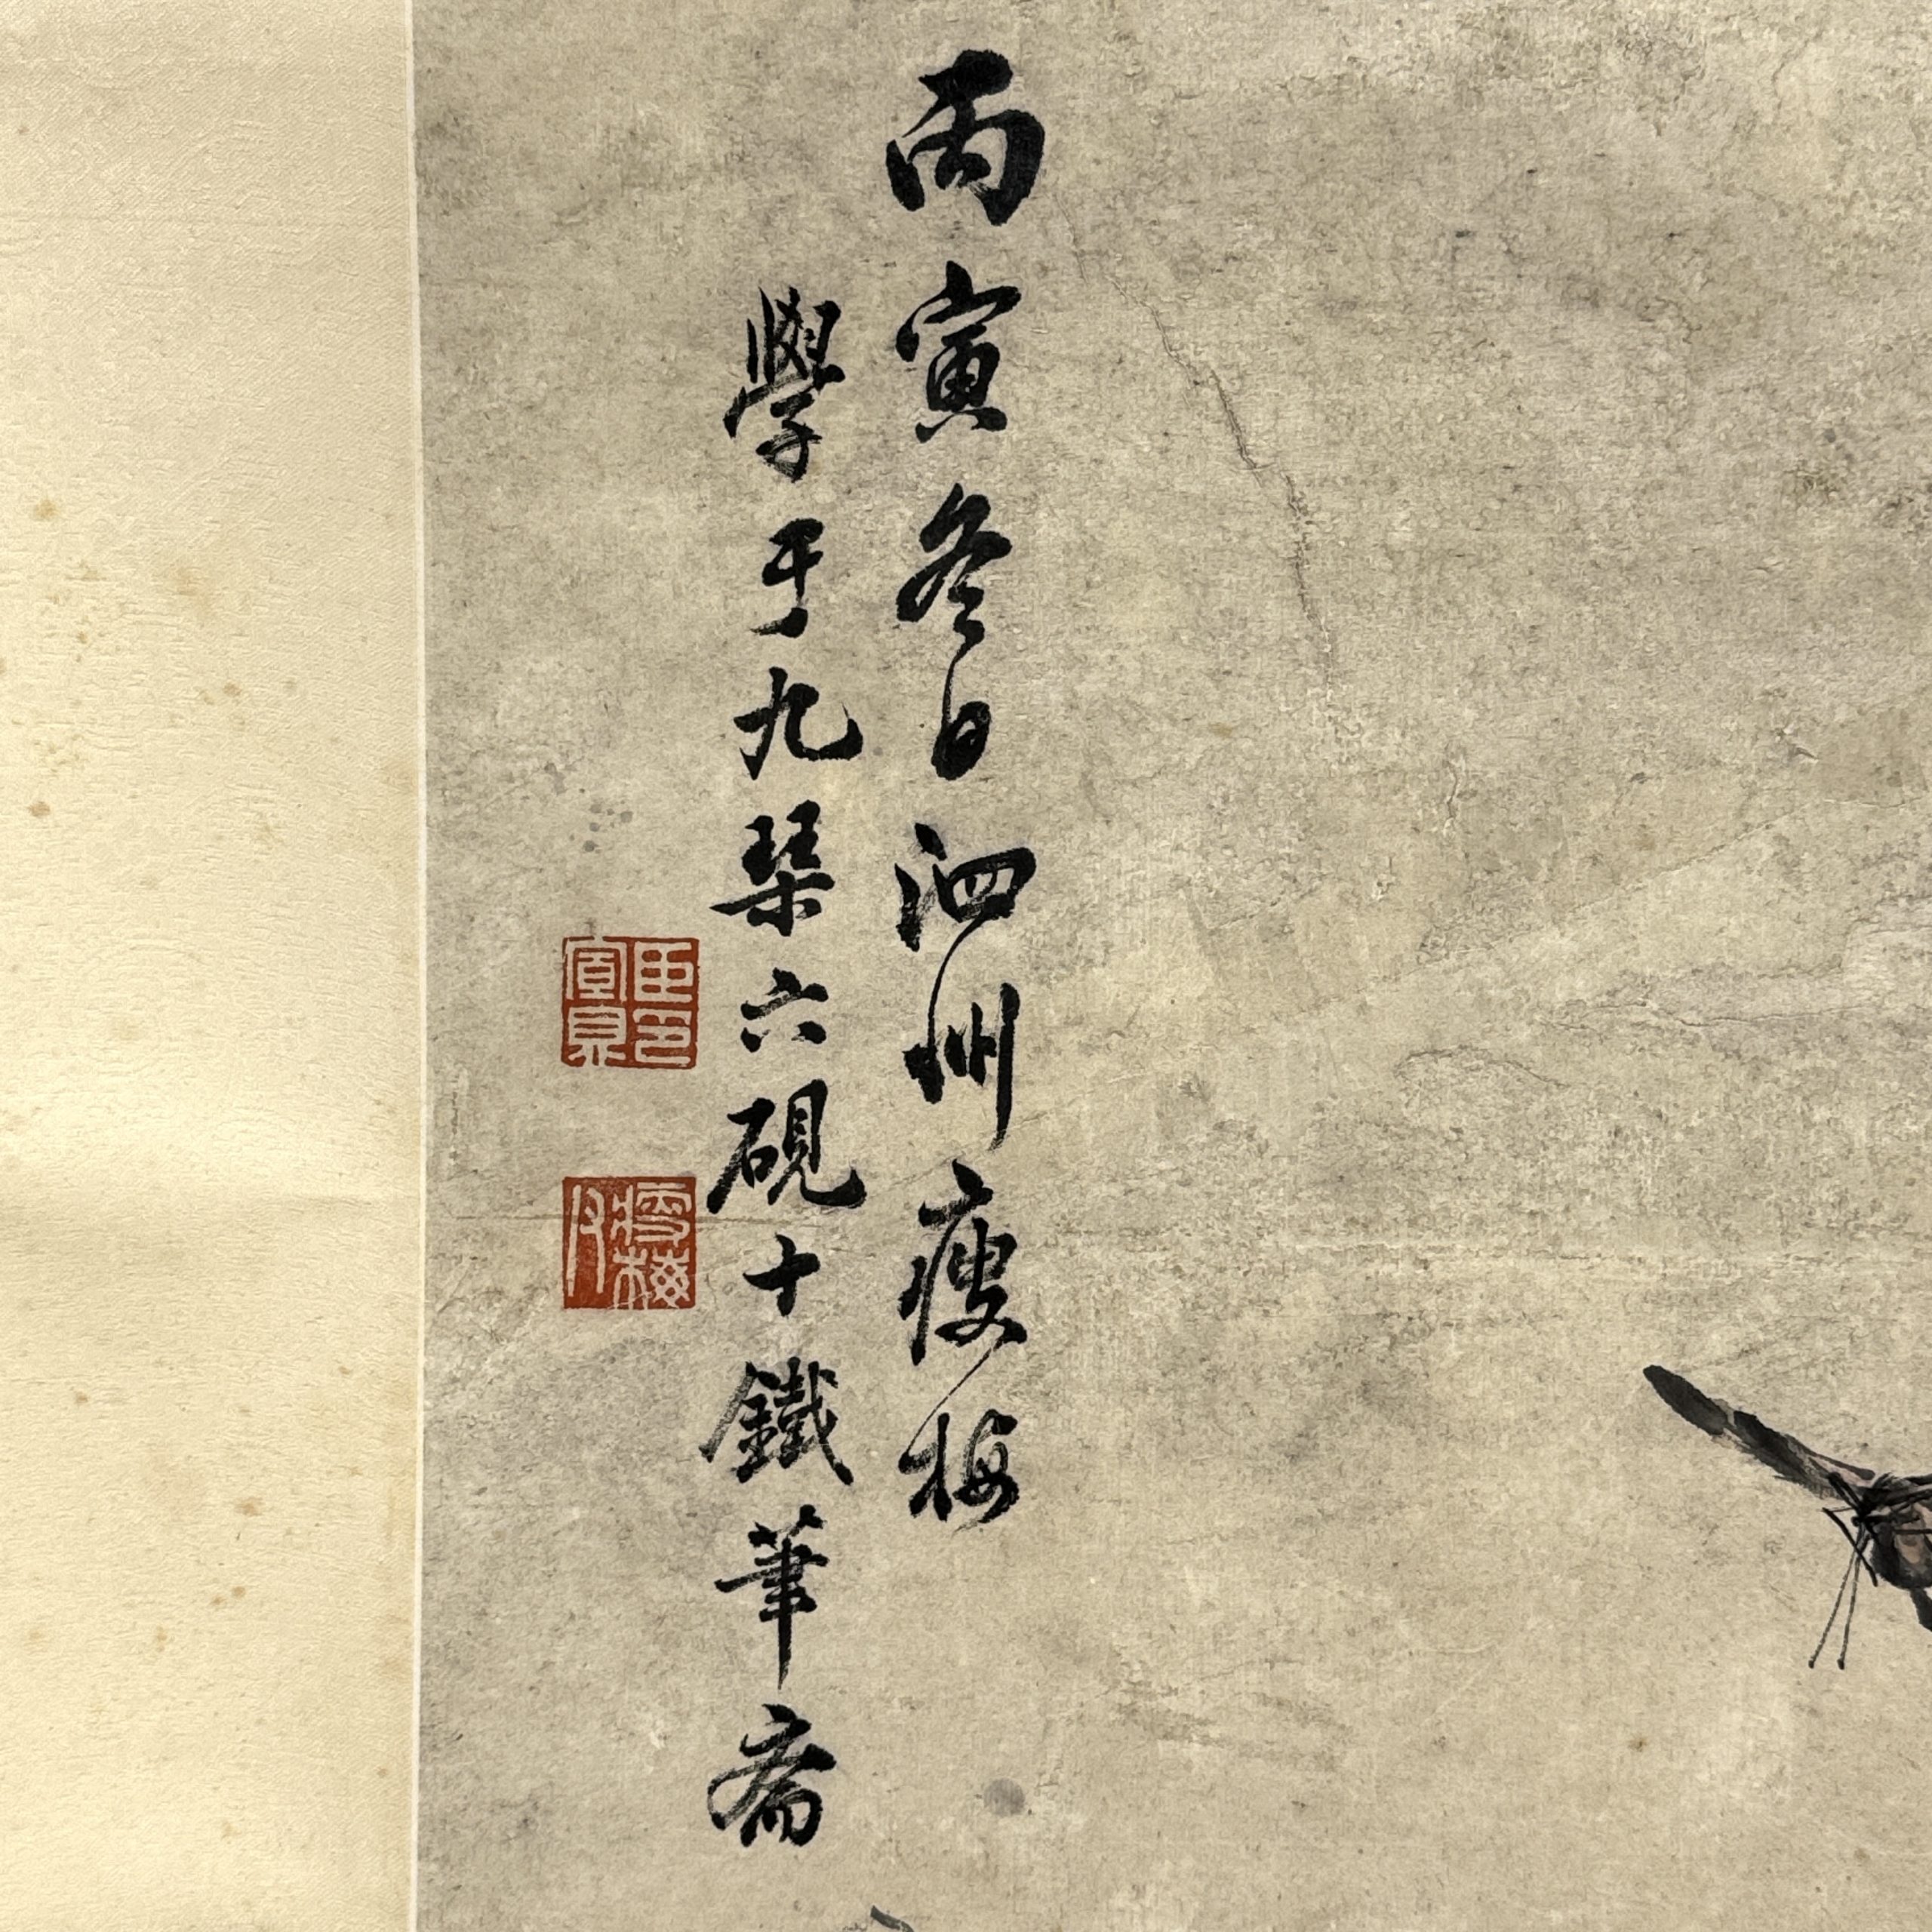 丙寅冬日泗州瘦梅
學于九琹六硯十鐵筆斋